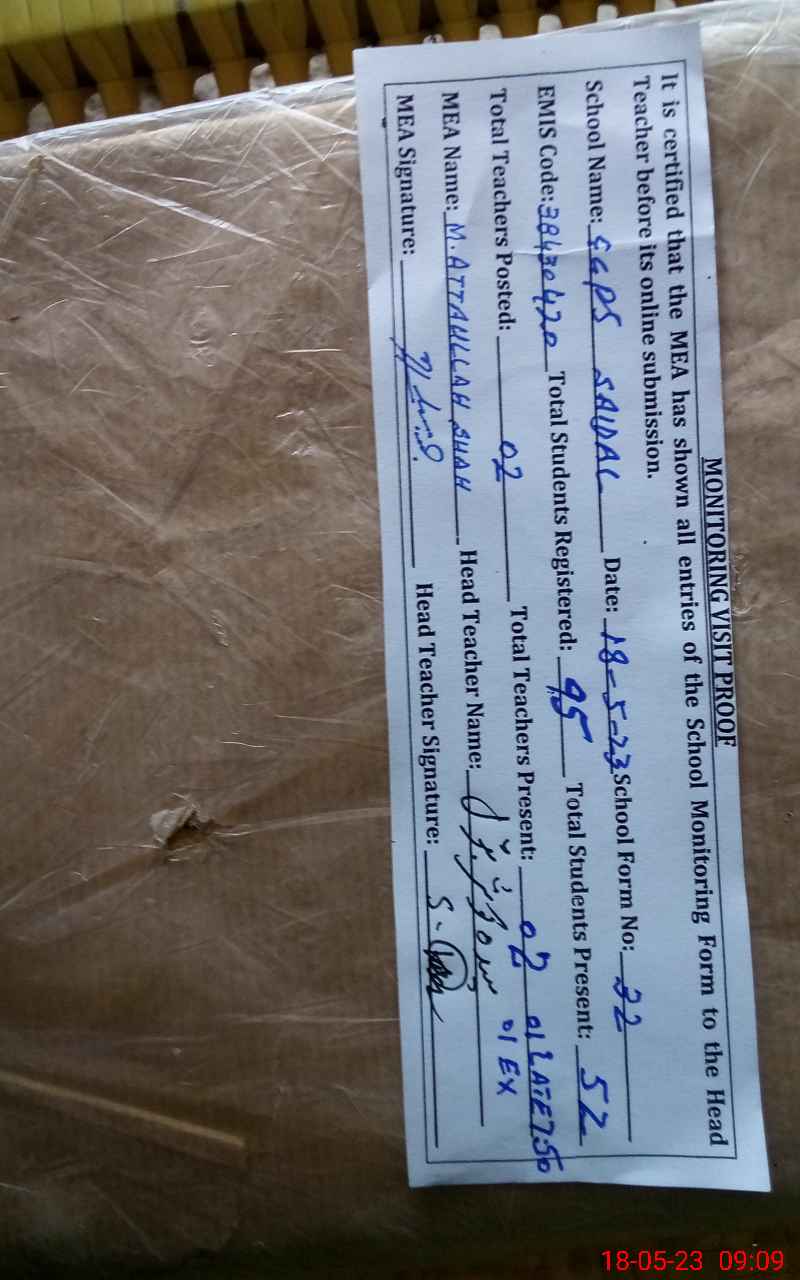 MONITORING VISIT PROOF
It is certified that the MEA has shown all entries of the School Monitoring Form to the Head
Teacher before its online submission.
School Name: GGPS SAUDAL Date: 18-5-23 School Form No: 32
EMIS Code: 38430420 Total Students Registered: 95 Total Students Present: 52
Total Teachers Posted: 02 Total Teachers Present: 02 01 LATE 7:50
01 EX
MEA Name: M. ATTAULLAH SHAH Head Teacher Name:
MEA Signature: Head Teacher Signature:
18-05-23 09:09